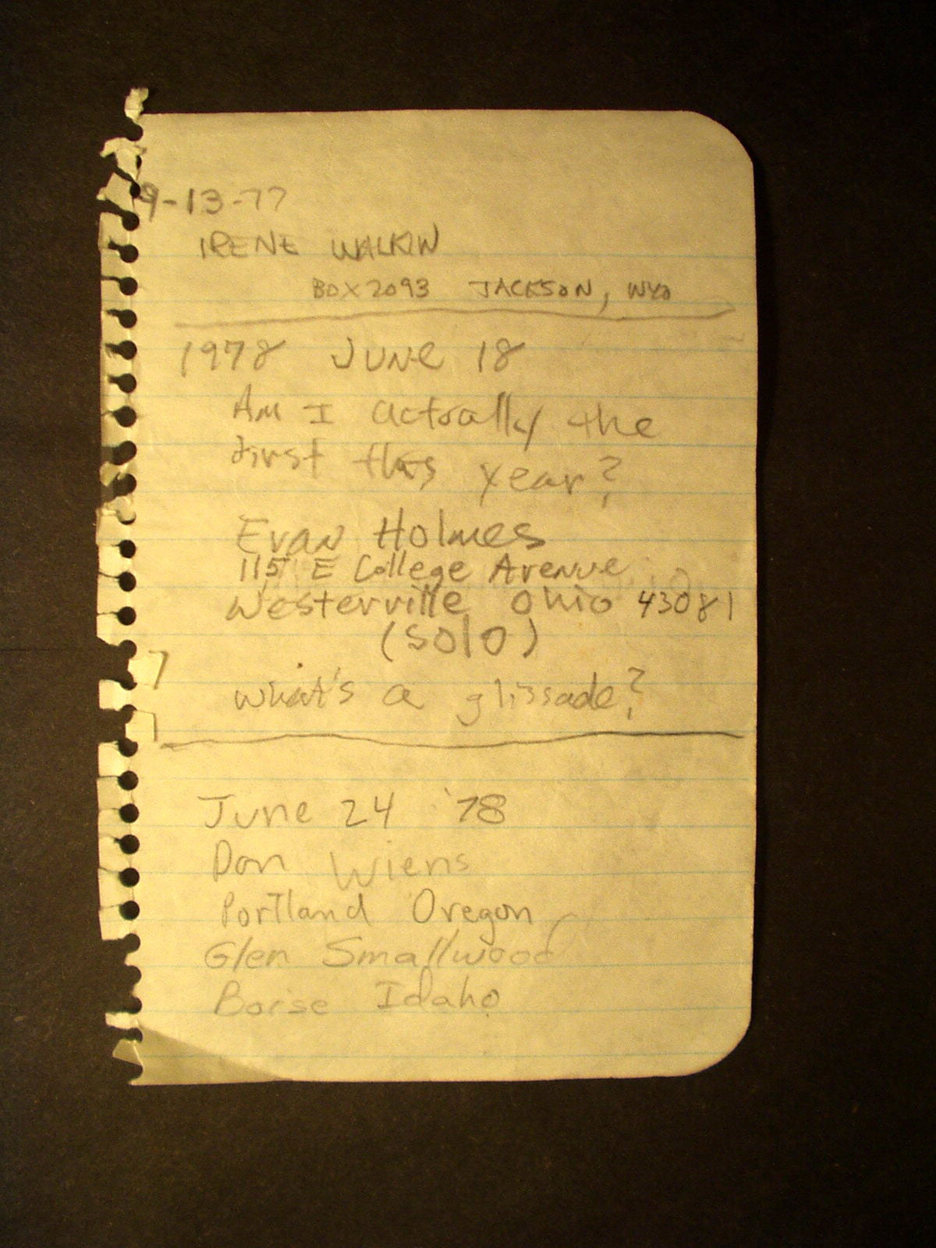 9-13-77
IRENE WALKIN
BOX 2093 JACKSON, WYO
1978 JUNE 18
Am I actually the
first this year?
Evan Holmes
115 E College Avenue
Westerville Ohio 43081
(solo)
what's a glissade?
June 24 '78
Dan Wiens
Portland Oregon
Glen Smallwood
Boise Idaho